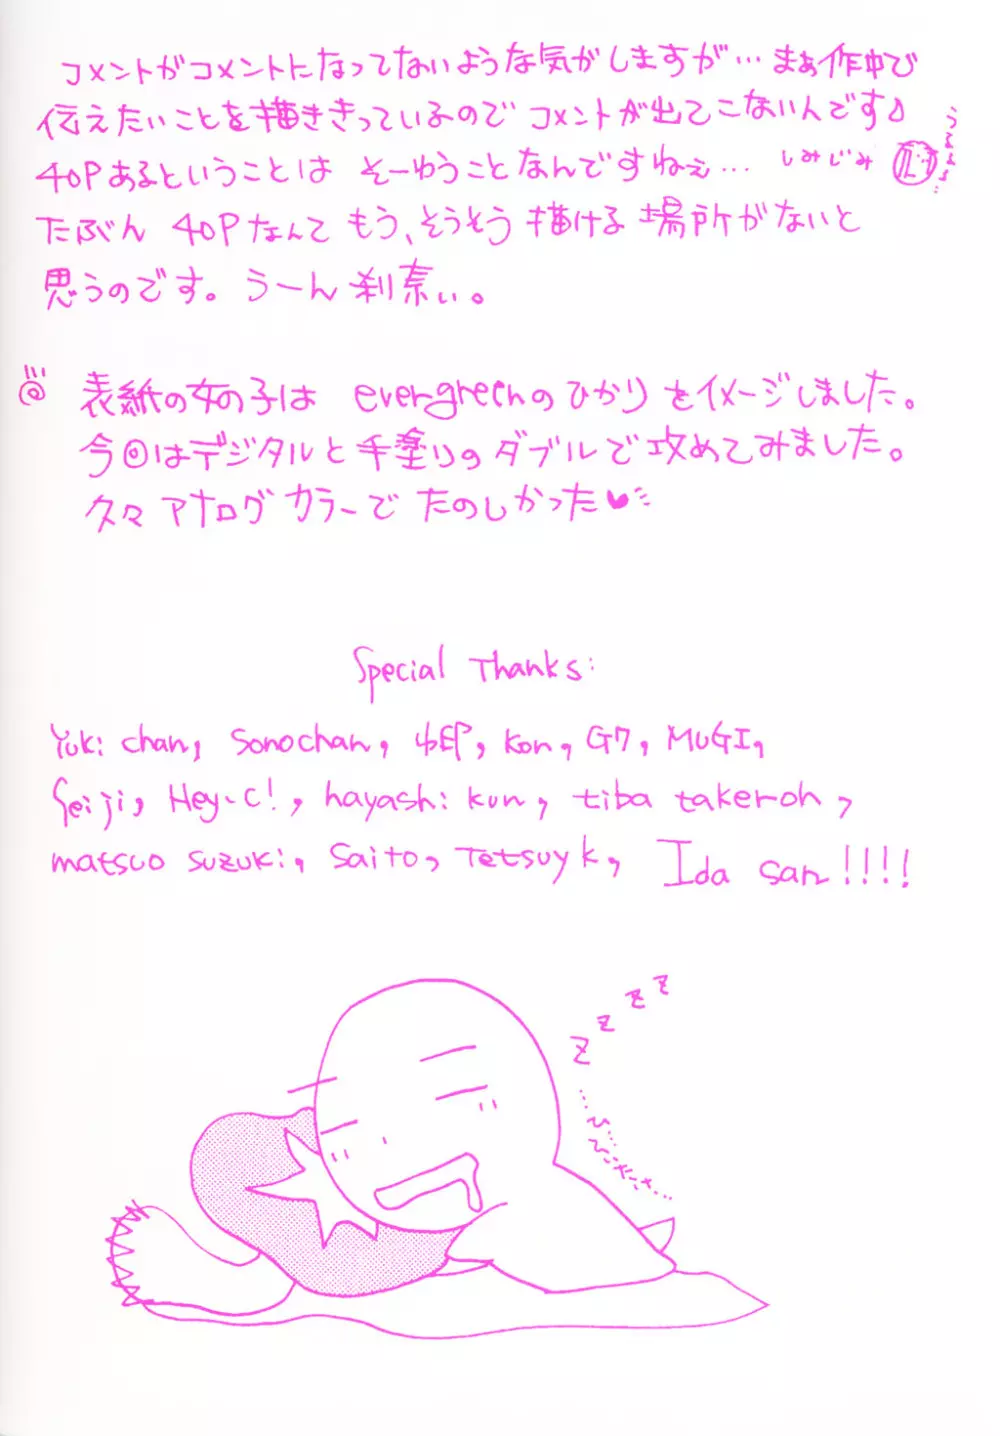 コメントがコメントになってないような気がしますが…まぁ作中で
伝えたいことを描ききっているのでコメントが出てこないんです♪
40Pあるということは そーゆうことなんですねぇ… しみじみ
たぶん 40Pなんて もう、そうそう描ける場所がないと
思うのです。うーん 刹素ぃ。
表紙の女の子は evergreenのひかりをイメージしました。
今回はデジタルと手塗りのダブルで攻めてみました。
久々アナログカラーで たのしかった♥
Special Thanks:
Yuki chan, Sonochan, 中EP, Kon, G7, MUGI,
Seiji, Hey-C!, hayashi kun, tiba takeroh,
matsuo suzuki, Saito, Tetsuyk, Ida san!!!!
Z Z Z Z